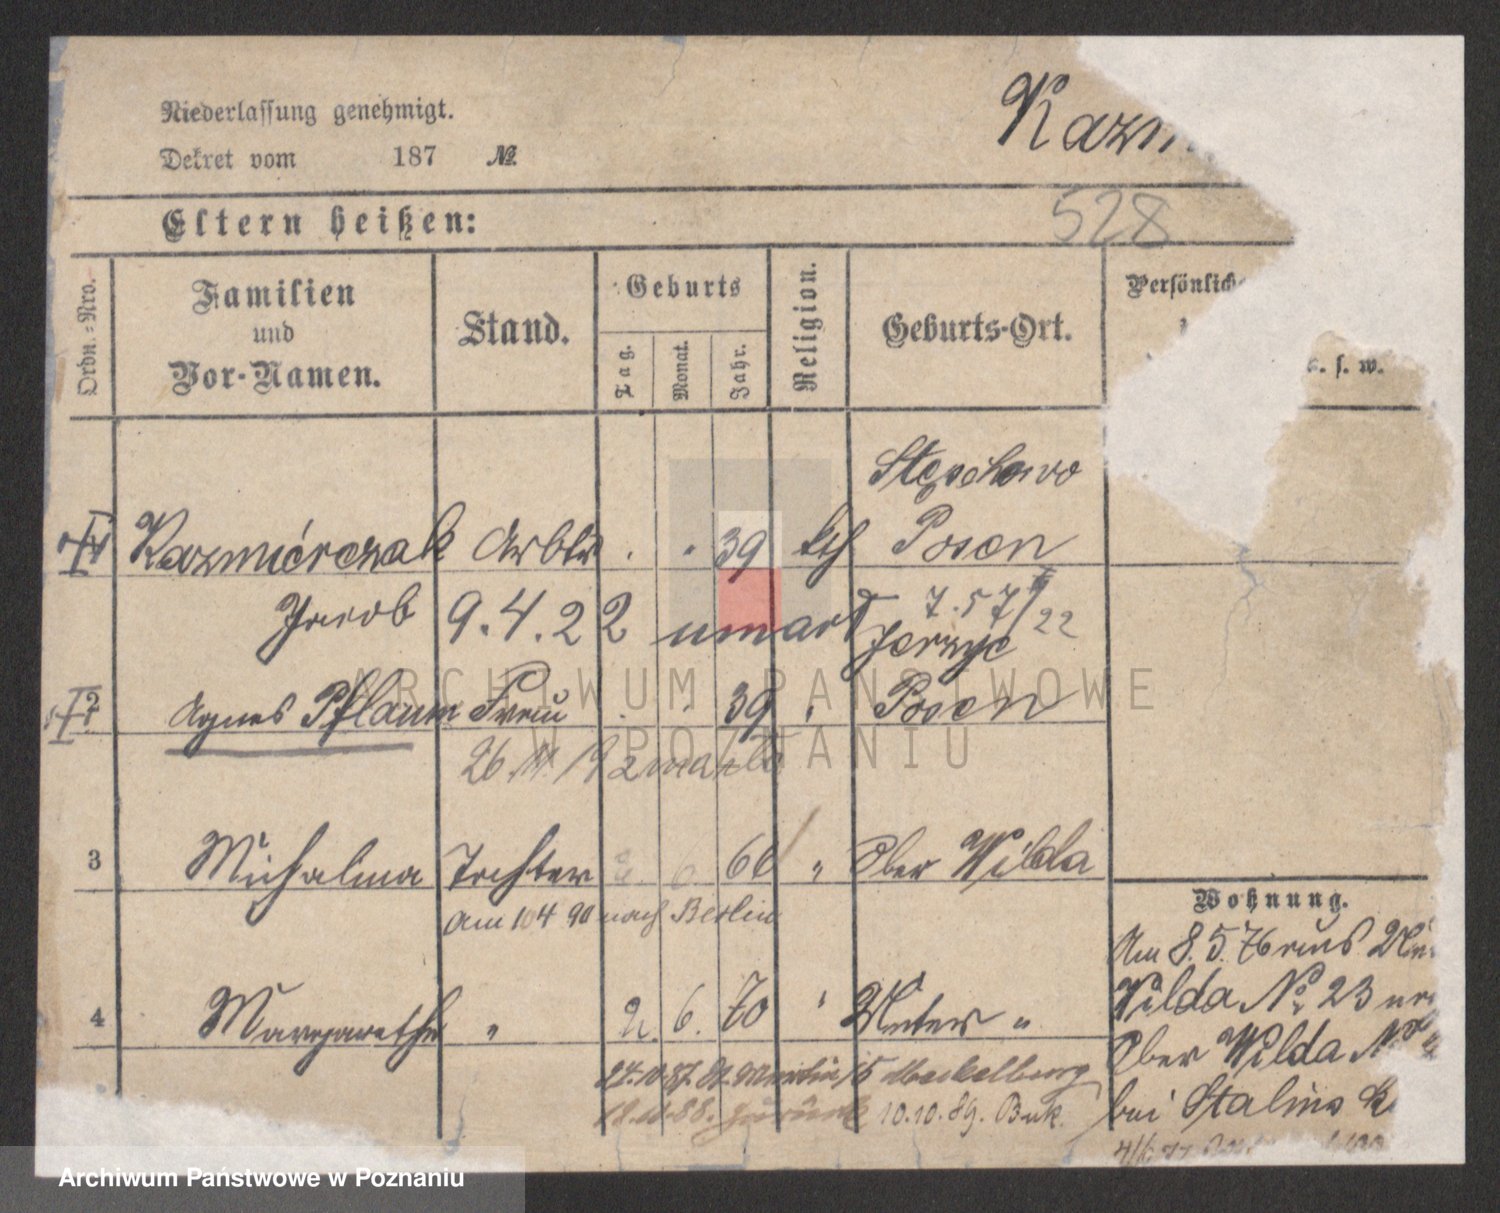 Niederlassung genehmigt.
Dekret vom 187 №
Kazm
Eltern heißen:
528
Ordn.-Nro.
Familien
und
Vor-Namen.
Stand.
Geburts
Tag.
Monat.
Jahr.
Religion.
Geburts-Ort.
Persönliche
u. s. w.
Stęschewo
Kazmiérczak Arbtr . . 39 kth Posen
Jacob 9.4.22 umart 7.57/22
Jerzyc
2 Agnes Pflaum Frau . . 39 " Posen
26. 19 zmarła
3 Michalina Tochter 66 " Ober Wilda
am 10 4 90 nach Berlin
4 Margarethe " 2. 6. 70 " Unter "
10.10.89. Buk.
Wohnung.
Am 8.5.76 aus
Wilda No 23
Ober Wilda No
bei Stalins
ARCHIWUM PAŃSTWOWE
W POZNANIU
Archiwum Państwowe w Poznaniu